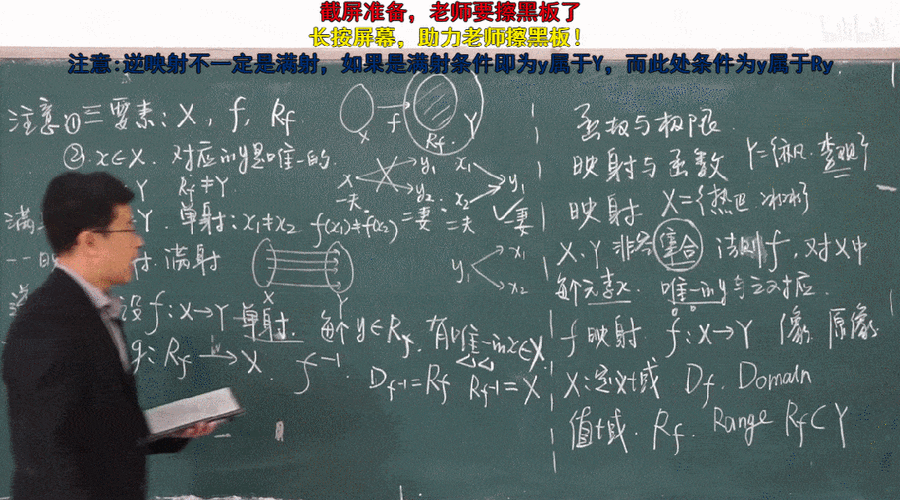 截屏准备，老师要擦黑板了
长按屏幕，助力老师擦黑板！
注意:逆映射不一定是满射，如果是满射条件即为y属于Y，而此处条件为y属于Ry
注意①三要素: X, f, Rf.
② x∈X. 对应的y是唯一的.
Y Rf≠Y.
满
Y. 单射: x₁≠x₂ f(x₁)≠f(x₂)
一一 射. 满射
设f: X→Y 单射. 每个y∈Rf, 有唯一的x∈X.
g: Rf→X. f⁻¹.
Df⁻¹=Rf Rf⁻¹=X
X f Rf. Y
x y₁ y₂
一夫 二妻
x₁ x₂ y₁
二夫 一妻
y₁ x₁ x₂
X Y
函数与极限.
映射与函数
映射 X={热巴 冰冰}
X, Y 非空集合 法则f, 对X中
每个元素x. 唯一的y与之对应.
f 映射. f: X→Y 像 原像
X: 定义域 Df. Domain
值域. Rf. Range Rf⊂Y